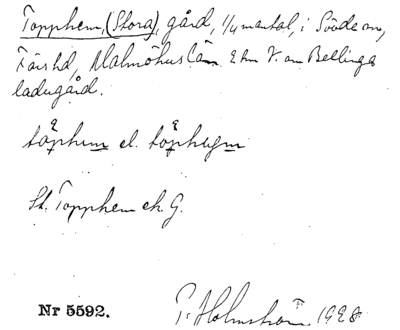 Topphem, (Stora), gård, 1/4 mantal, i Södde sn,
Färs hd, Malmöhus län. 2 km V. om Bellinga
ladugård.
el.
St. Topphem ek. G.
Nr 5592.
P. Holmström 1928